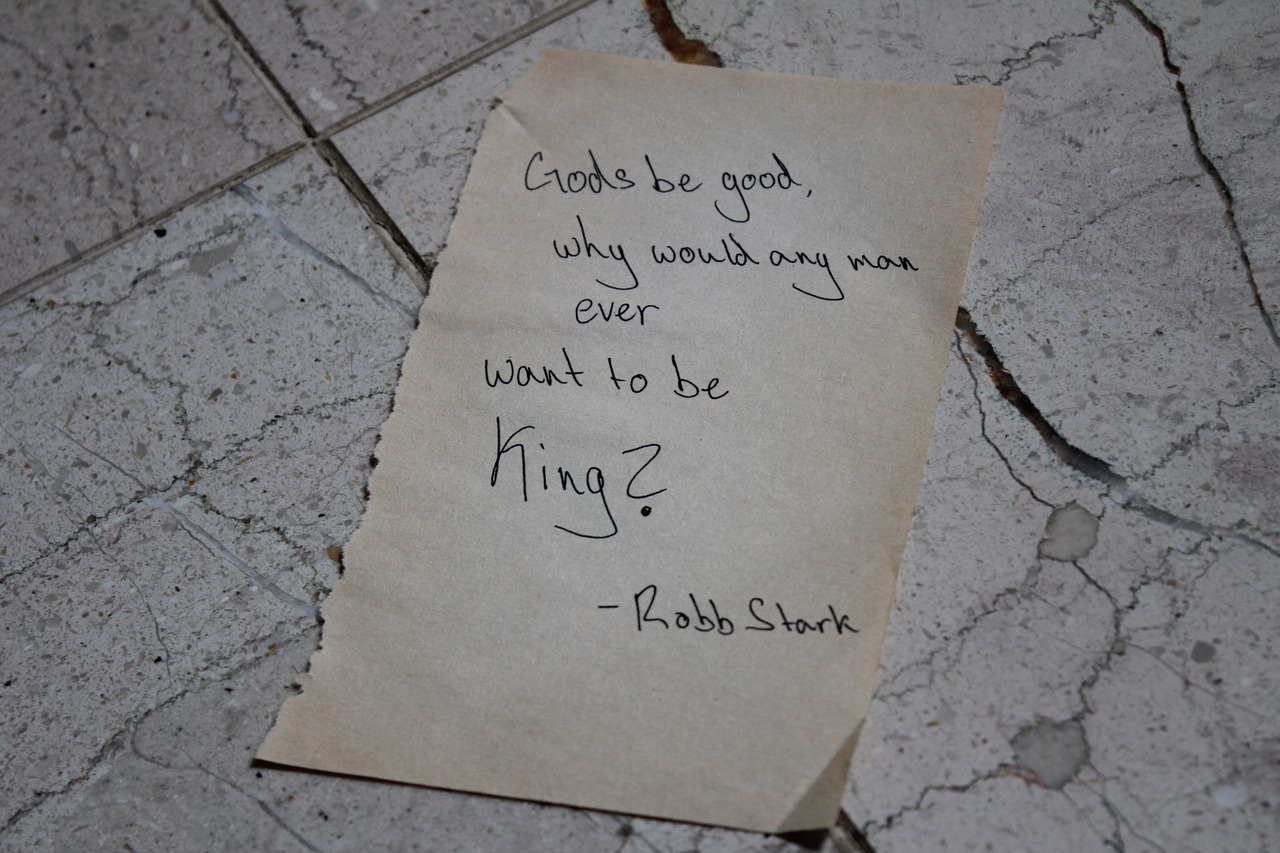 Gods be good,
why would any man
ever
want to be
King?
- Robb Stark